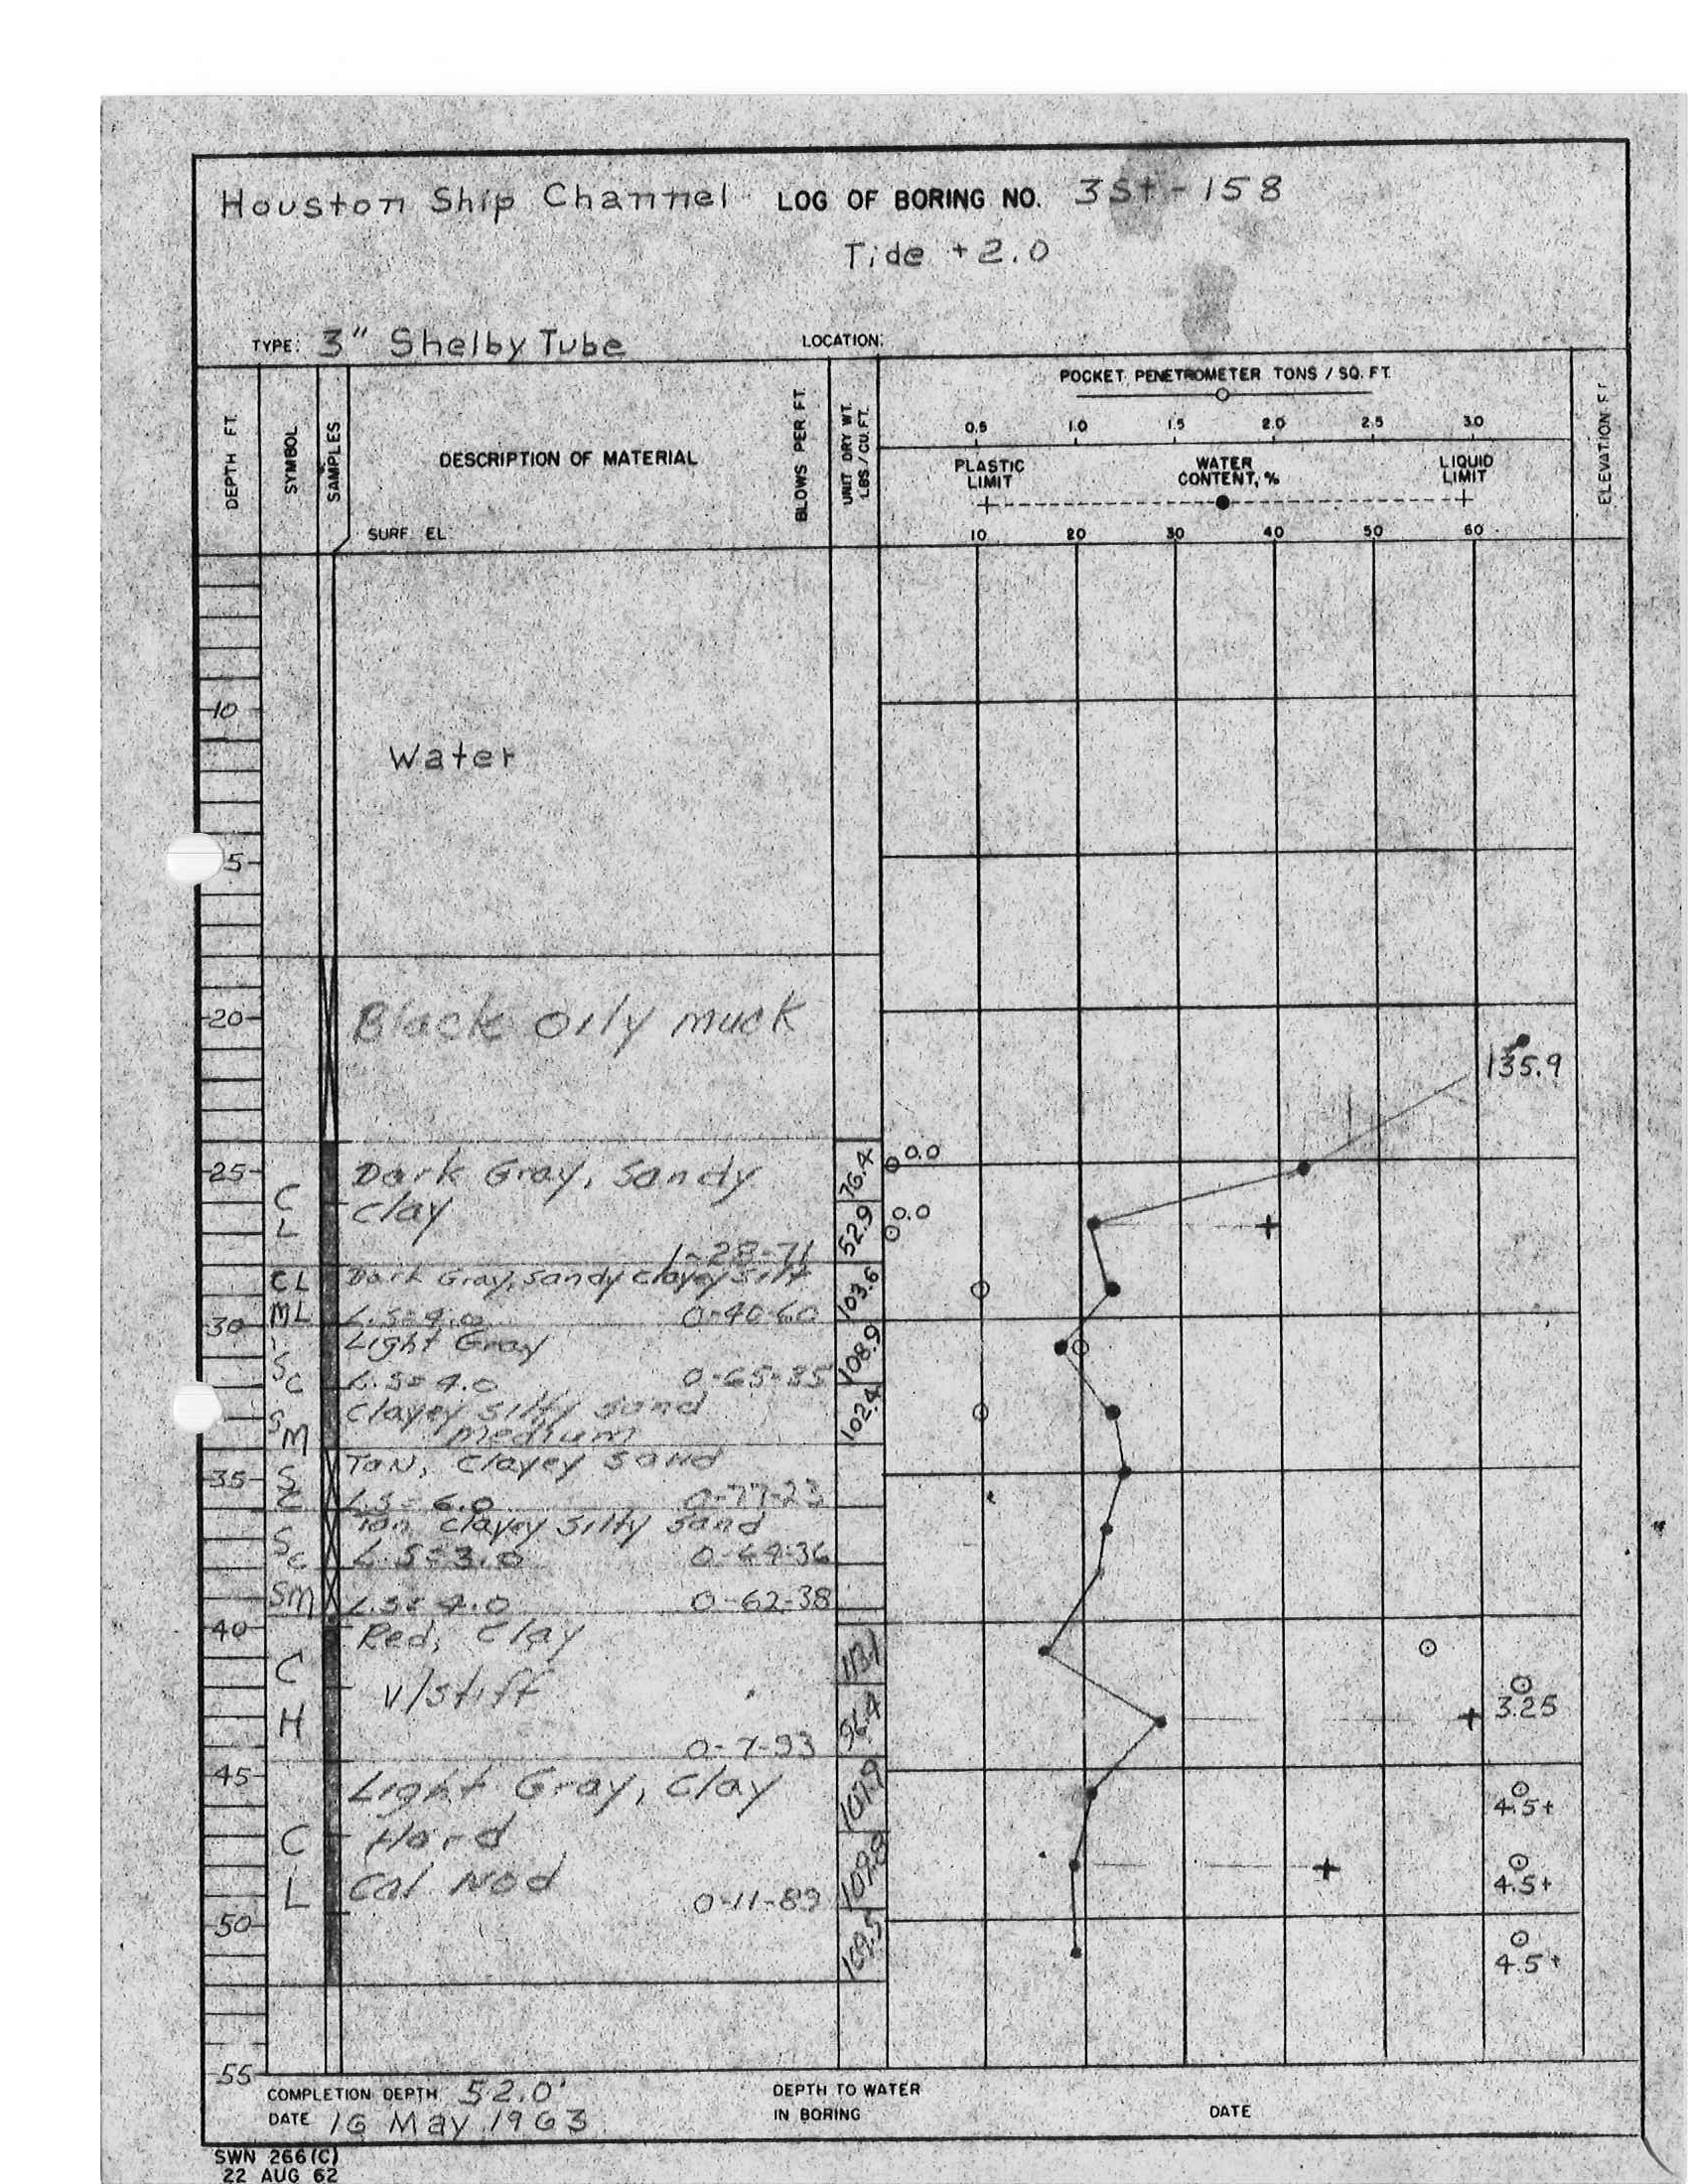 Houston Ship Channel LOG OF BORING NO. 3St-158
Tide +2.0
TYPE: 3" Shelby Tube LOCATION:
DEPTH FT.
SYMBOL
SAMPLES
DESCRIPTION OF MATERIAL
SURF. EL.
BLOWS PER FT.
UNIT DRY WT. LBS/CU.FT.
POCKET PENETROMETER TONS / SQ. FT.
0.5 1.0 1.5 2.0 2.5 3.0
PLASTIC LIMIT
WATER CONTENT, %
LIQUID LIMIT
10 20 30 40 50 60
ELEVATION FT
10
Water
5
20
Black oily muck
135.9
25
C L
Dark Gray, Sandy
clay
1-28-71
76.4
0.0
52.9
0.0
CL ML
Dark Gray, Sandy clayey silt
L.S=4.0 0-40-60
103.6
30
Sc
Light Gray
L.S=4.0 0-65-35
108.9
SM
Clayey silty sand
medium
102.4
35
SC
Tan, Clayey Sand
L.S=6.0 0-77-23
Sc
Tan, clayey silty sand
L.S=3.0 0-64-36
SM
L.S=4.0 0-62-38
40
C H
Red, Clay
v/stiff
0-7-93
113.1
96.4
3.25
45
Light Gray, Clay
C L
Hard
Cal Nod 0-11-89
107.9
4.5+
109.8
4.5+
50
109.5
4.5+
55
COMPLETION DEPTH 52.0'
DATE 16 May 1963
DEPTH TO WATER
IN BORING
DATE
SWN 266(C)
22 AUG 62